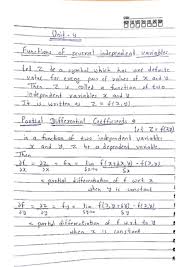 Unit - 4
Functions of several independent variables
Let Z be a symbol which has one definite
value for every pair of values of x and y
Then Z is called a function of two
independent variables x and y
It is written as Z = f(x,y)
Partial Differential Coefficients :
Let Z = f(x,y)
is a function of two independent variable
Then
∂f/∂x = ∂z/∂x = fx = lim δx→0 f(x+δx,y) - f(x,y) / δx
= partial differentiation of f w.r.t x
when y is constant
∂f/∂y = ∂z/∂y = fy = lim δy→0 f(x,y+δy) - f(x,y) / δy
= partial differentiation of f w.r.t to y
when x is constant